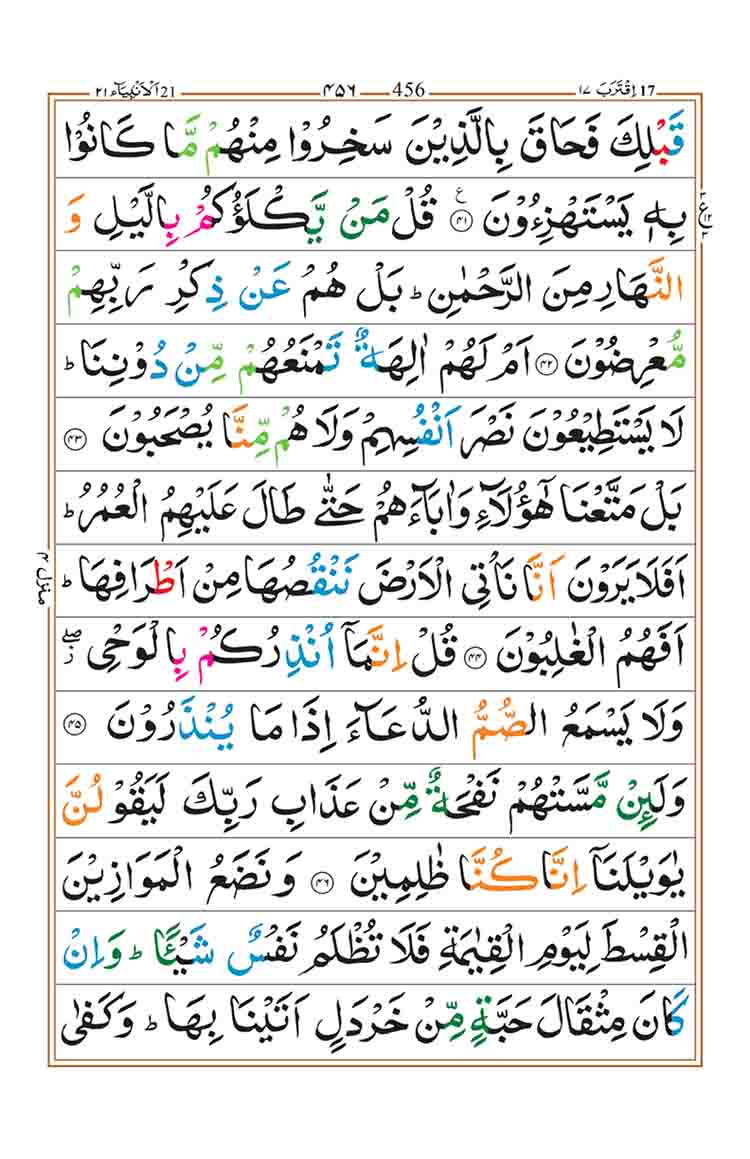 اِقْتَرَبَ ١٧ 17 — ٤٥٦ — 456 — اَلْاَنْۢبِيَآء ٢١ 21
قَبْلِكَ فَحَاقَ بِالَّذِيْنَ سَخِرُوْا مِنْهُمْ مَّا كَانُوْا
بِهٖ يَسْتَهْزِءُوْنَ ۴۱ ع قُلْ مَنْ يَّكْلَؤُكُمْ بِالَّيْلِ وَ
النَّهَارِ مِنَ الرَّحْمٰنِ ؕ بَلْ هُمْ عَنْ ذِكْرِ رَبِّهِمْ
مُّعْرِضُوْنَ ۴۲ اَمْ لَهُمْ اٰلِهَةٌ تَمْنَعُهُمْ مِّنْ دُوْنِنَا ؕ
لَا يَسْتَطِيْعُوْنَ نَصْرَ اَنْفُسِهِمْ وَلَا هُمْ مِّنَّا يُصْحَبُوْنَ ۴۳
بَلْ مَتَّعْنَا هٰٓؤُلَآءِ وَاٰبَآءَهُمْ حَتّٰى طَالَ عَلَيْهِمُ الْعُمُرُ ؕ
اَفَلَا يَرَوْنَ اَنَّا نَاْتِى الْاَرْضَ نَنْقُصُهَا مِنْ اَطْرَافِهَا ؕ
اَفَهُمُ الْغٰلِبُوْنَ ۴۴ قُلْ اِنَّمَآ اُنْذِرُكُمْ بِالْوَحْىِ ۖ ز
وَلَا يَسْمَعُ الصُّمُّ الدُّعَآءَ اِذَا مَا يُنْذَرُوْنَ ۴۵
وَلَئِنْ مَّسَّتْهُمْ نَفْحَةٌ مِّنْ عَذَابِ رَبِّكَ لَيَقُوْلُنَّ
يٰوَيْلَنَآ اِنَّا كُنَّا ظٰلِمِيْنَ ۴۶ وَنَضَعُ الْمَوَازِيْنَ
الْقِسْطَ لِيَوْمِ الْقِيٰمَةِ فَلَا تُظْلَمُ نَفْسٌ شَيْـًٔا ؕ وَاِنْ
كَانَ مِثْقَالَ حَبَّةٍ مِّنْ خَرْدَلٍ اَتَيْنَا بِهَا ؕ وَكَفٰى
منزل ۴